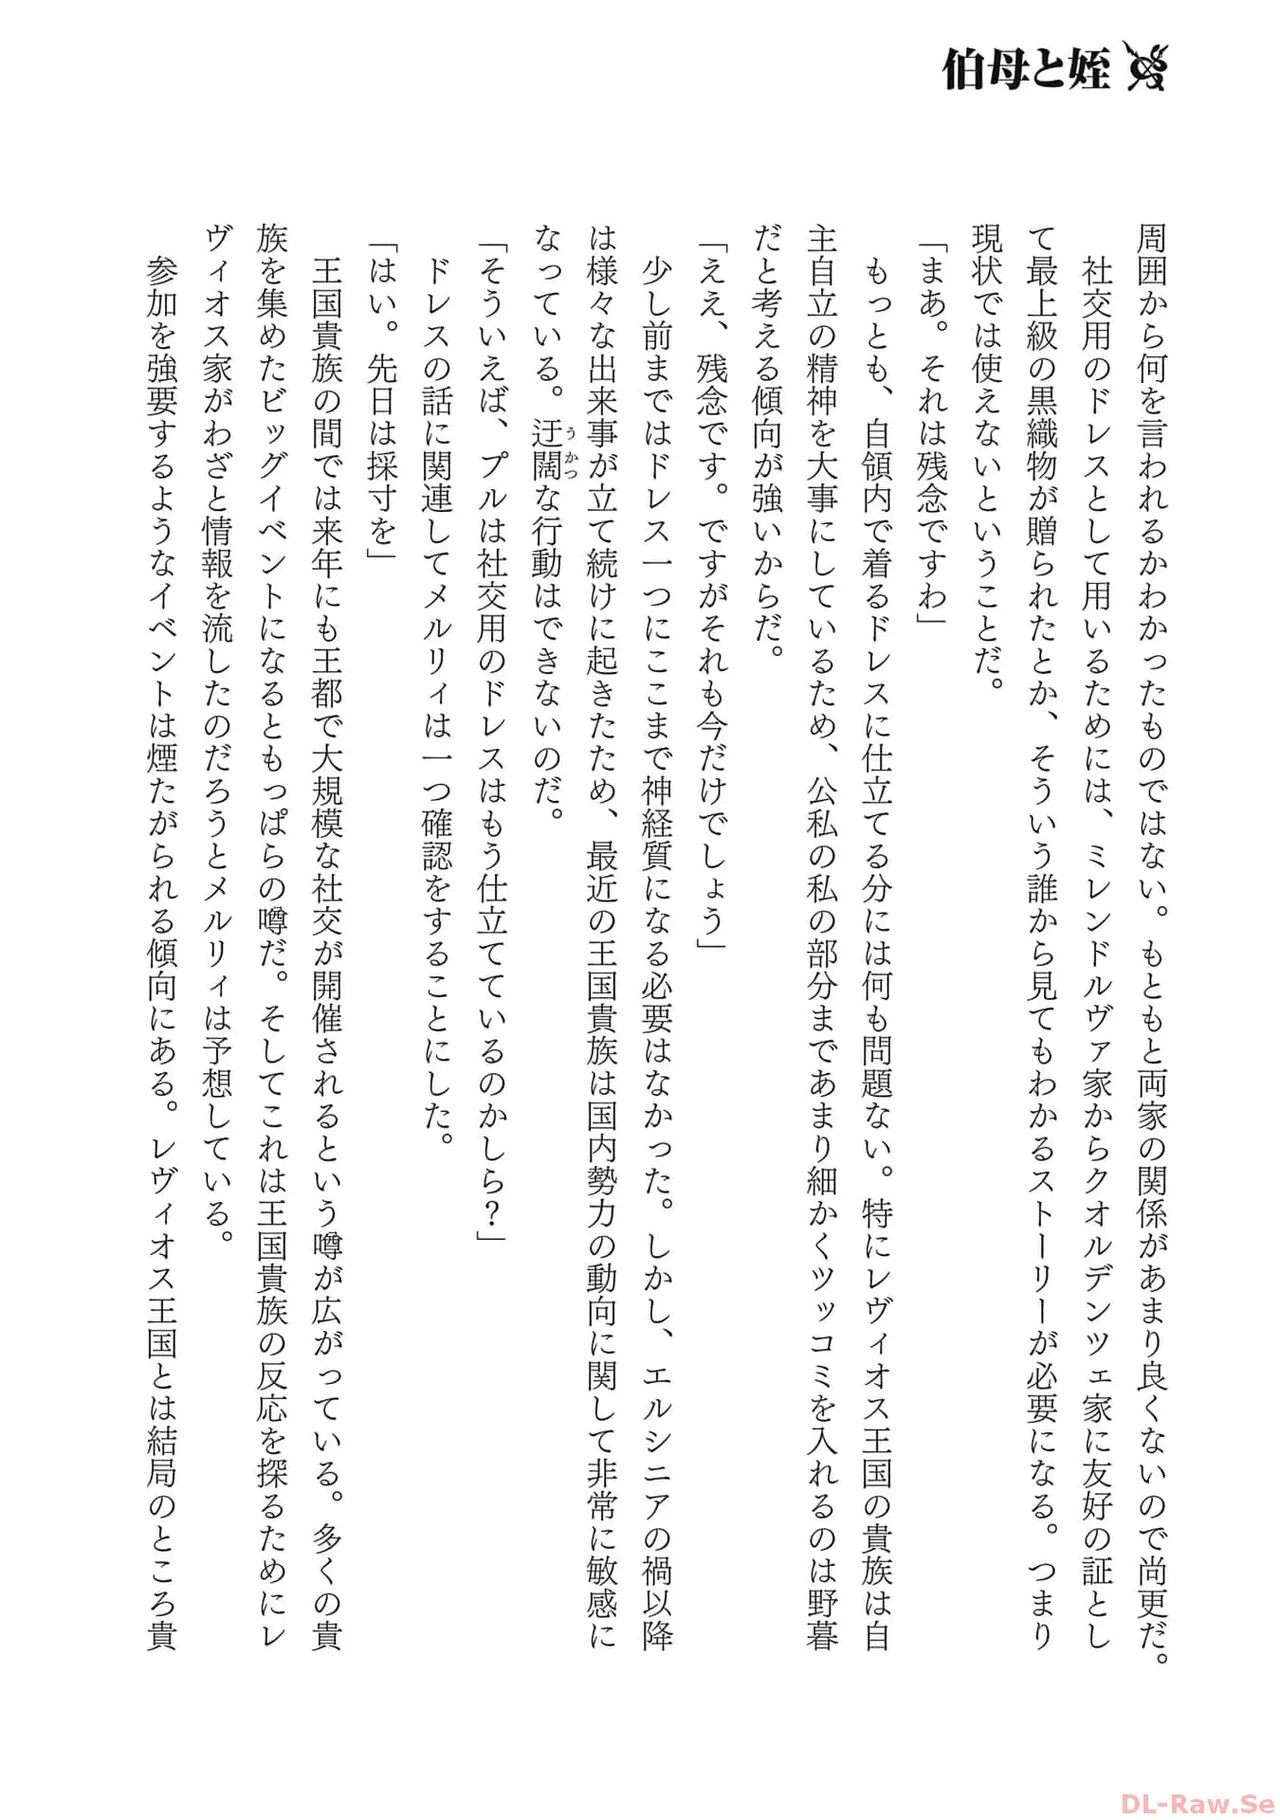 伯母と姪
周囲から何を言われるかわかったものではない。もともと両家の関係があまり良くないので尚更だ。
社交用のドレスとして用いるためには、ミレンドルヴァ家からクオルデンツェ家に友好の証とし
て最上級の黒織物が贈られたとか、そういう誰から見てもわかるストーリーが必要になる。つまり
現状では使えないということだ。
「まあ。それは残念ですわ」
もっとも、自領内で着るドレスに仕立てる分には何も問題ない。特にレヴィオス王国の貴族は自
主自立の精神を大事にしているため、公私の私の部分まであまり細かくツッコミを入れるのは野暮
だと考える傾向が強いからだ。
「ええ、残念です。ですがそれも今だけでしょう」
少し前まではドレス一つにここまで神経質になる必要はなかった。しかし、エルシニアの禍以降
は様々な出来事が立て続けに起きたため、最近の王国貴族は国内勢力の動向に関して非常に敏感に
なっている。迂闊な行動はできないのだ。
うかつ
「そういえば、プルは社交用のドレスはもう仕立てているのかしら？」
ドレスの話に関連してメルリィは一つ確認をすることにした。
「はい。先日は採寸を」
王国貴族の間では来年にも王都で大規模な社交が開催されるという噂が広がっている。多くの貴
族を集めたビッグイベントになるともっぱらの噂だ。そしてこれは王国貴族の反応を探るためにレ
ヴィオス家がわざと情報を流したのだろうとメルリィは予想している。
参加を強要するようなイベントは煙たがられる傾向にある。レヴィオス王国とは結局のところ貴
DL-Raw.Se